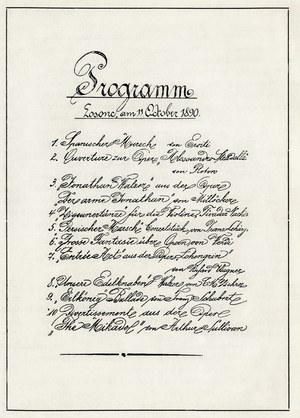 Programm
Losoncz, am 11 October 1890.
1. Spanischer Marsch von Eroti
2. Ouverture zur Oper, Alessandro Stradella
von Flotow
3. "Jonathan Walzer" aus der Oper
"Der arme Jonathan" von Millöcker
4. für die Violine,
5. Marsch,
6. Grosse Fantasie über Opern von Verdi
7. Entrée Act aus der Oper "Lohengrin"
von Richard Wagner
8. "Unsere Edelknaben" Walzer von
9. "Erlkönig" Ballade von Franz Schubert
10. Divertissement aus der Oper
"The Mikado" von Arthur Sullivan